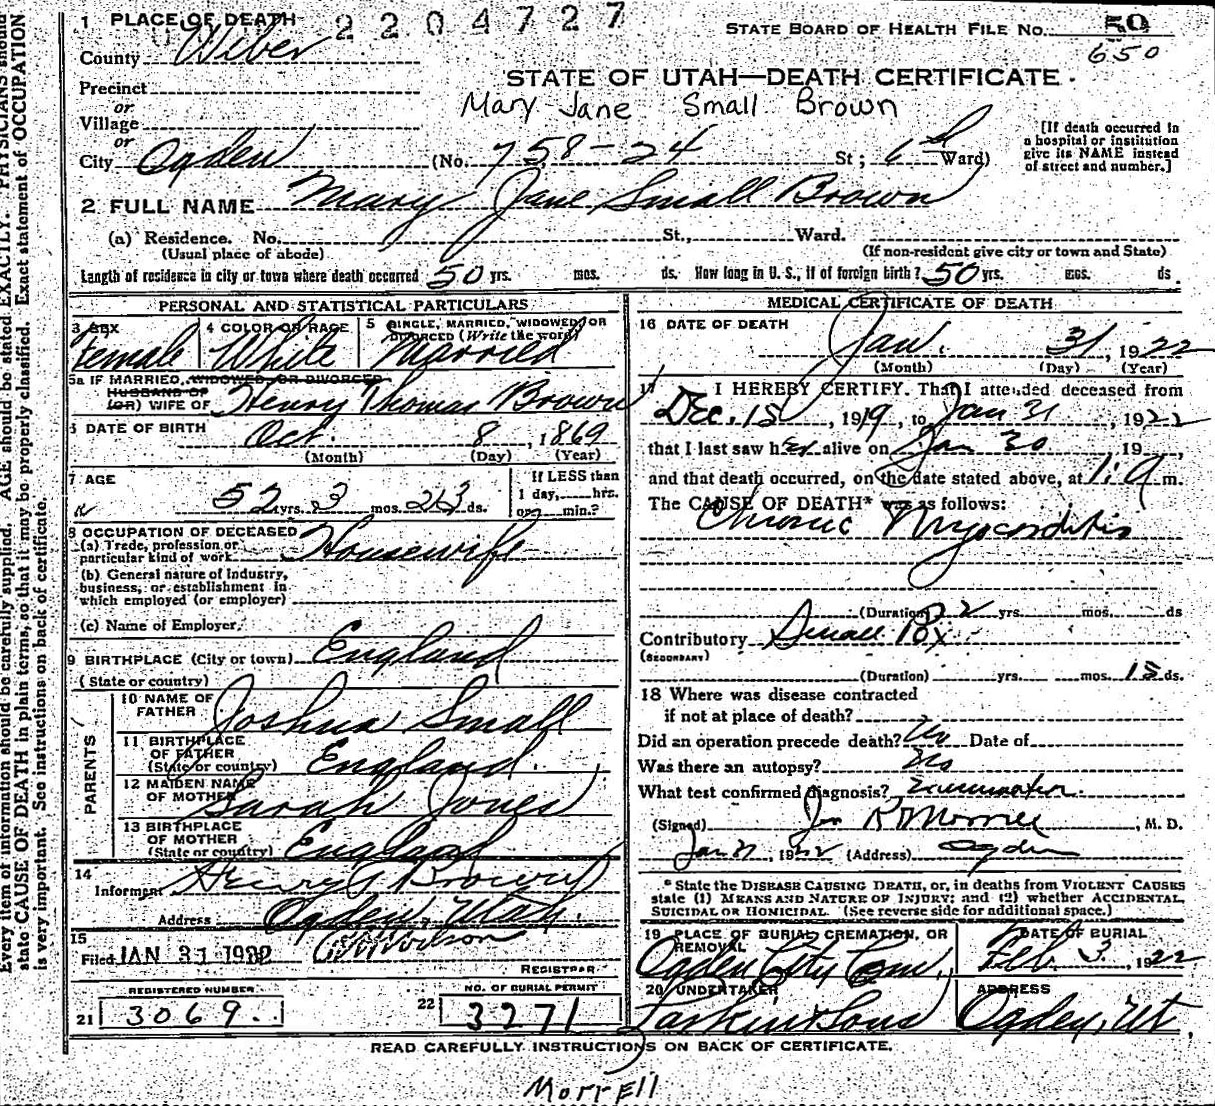 1 PLACE OF DEATH 2204727
STATE BOARD OF HEALTH FILE No. 59
650
County Weber
STATE OF UTAH—DEATH CERTIFICATE.
Precinct
Mary Jane Small Brown
or
Village
or
City Ogden (No. 758-24 St; 6th Ward)
[If death occurred in
a hospital or institution
give its NAME instead
of street and number.]
2 FULL NAME Mary Jane Small Brown
(a) Residence. No. St., Ward.
(Usual place of abode) (If non-resident give city or town and State)
Length of residence in city or town where death occurred 50 yrs. mos. ds. How long in U. S., if of foreign birth? 50 yrs. mos. ds
PERSONAL AND STATISTICAL PARTICULARS
3 SEX
Female
4 COLOR OR RACE
White
5 SINGLE, MARRIED, WIDOWED, OR
DIVORCED (Write the word)
Married
5a IF MARRIED, WIDOWED, OR DIVORCED
HUSBAND OF
(OR) WIFE OF Henry Thomas Brown
6 DATE OF BIRTH Oct. 8, 1869
(Month) (Day) (Year)
7 AGE
52 yrs. 3 mos. 23 ds.
If LESS than
1 day, hrs.
or min.?
8 OCCUPATION OF DECEASED
(a) Trade, profession or
particular kind of work Housewife
(b) General nature of industry,
business, or establishment in
which employed (or employer)
(c) Name of Employer.
9 BIRTHPLACE (City or town) England
(State or country)
PARENTS
10 NAME OF
FATHER Joshua Small
11 BIRTHPLACE
OF FATHER
(State or country) England.
12 MAIDEN NAME
OF MOTHER Sarah Jones
13 BIRTHPLACE
OF MOTHER
(State or country) England
14
Informant Henry T Brown
Address Ogden, Utah.
15
Filed JAN 31 1922 Wilson
REGISTRAR
REGISTERED NUMBER
21 3069..
NO. OF BURIAL PERMIT
22 3271
MEDICAL CERTIFICATE OF DEATH
16 DATE OF DEATH
Jan. 31, 1922
(Month) (Day) (Year)
17 I HEREBY CERTIFY. That I attended deceased from
Dec. 15, 1919, to Jan 31, 1922
that I last saw her alive on Jan 30 19
and that death occurred, on the date stated above, at 1: a m.
The CAUSE OF DEATH* was as follows:
Chronic Myocarditis
(Duration) 2 yrs. mos. ds
Contributory Small Pox
(SECONDARY)
(Duration) yrs. mos. 15 ds.
18 Where was disease contracted
if not at place of death?
Did an operation precede death? No Date of
Was there an autopsy? No
What test confirmed diagnosis?
(Signed) Jno R Morrell, M. D.
Jan 31, 1922 (Address) Ogden
* State the DISEASE CAUSING DEATH, or, in deaths from VIOLENT CAUSES
state (1) MEANS AND NATURE OF INJURY; and (2) whether ACCIDENTAL,
SUICIDAL OR HOMICIDAL. (See reverse side for additional space.)
19 PLACE OF BURIAL CREMATION, OR
REMOVAL
Ogden City Cem.
DATE OF BURIAL
Feb. 3, 1922
20 UNDERTAKER
Larkin & Sons
ADDRESS
Ogden, Ut.
READ CAREFULLY INSTRUCTIONS ON BACK OF CERTIFICATE.
Morrell
Every item of information should be carefully supplied. AGE should be stated EXACTLY. PHYSICIANS should
state CAUSE OF DEATH in plain terms, so that it may be properly classified. Exact statement of OCCUPATION
is very important. See instructions on back of certificate.